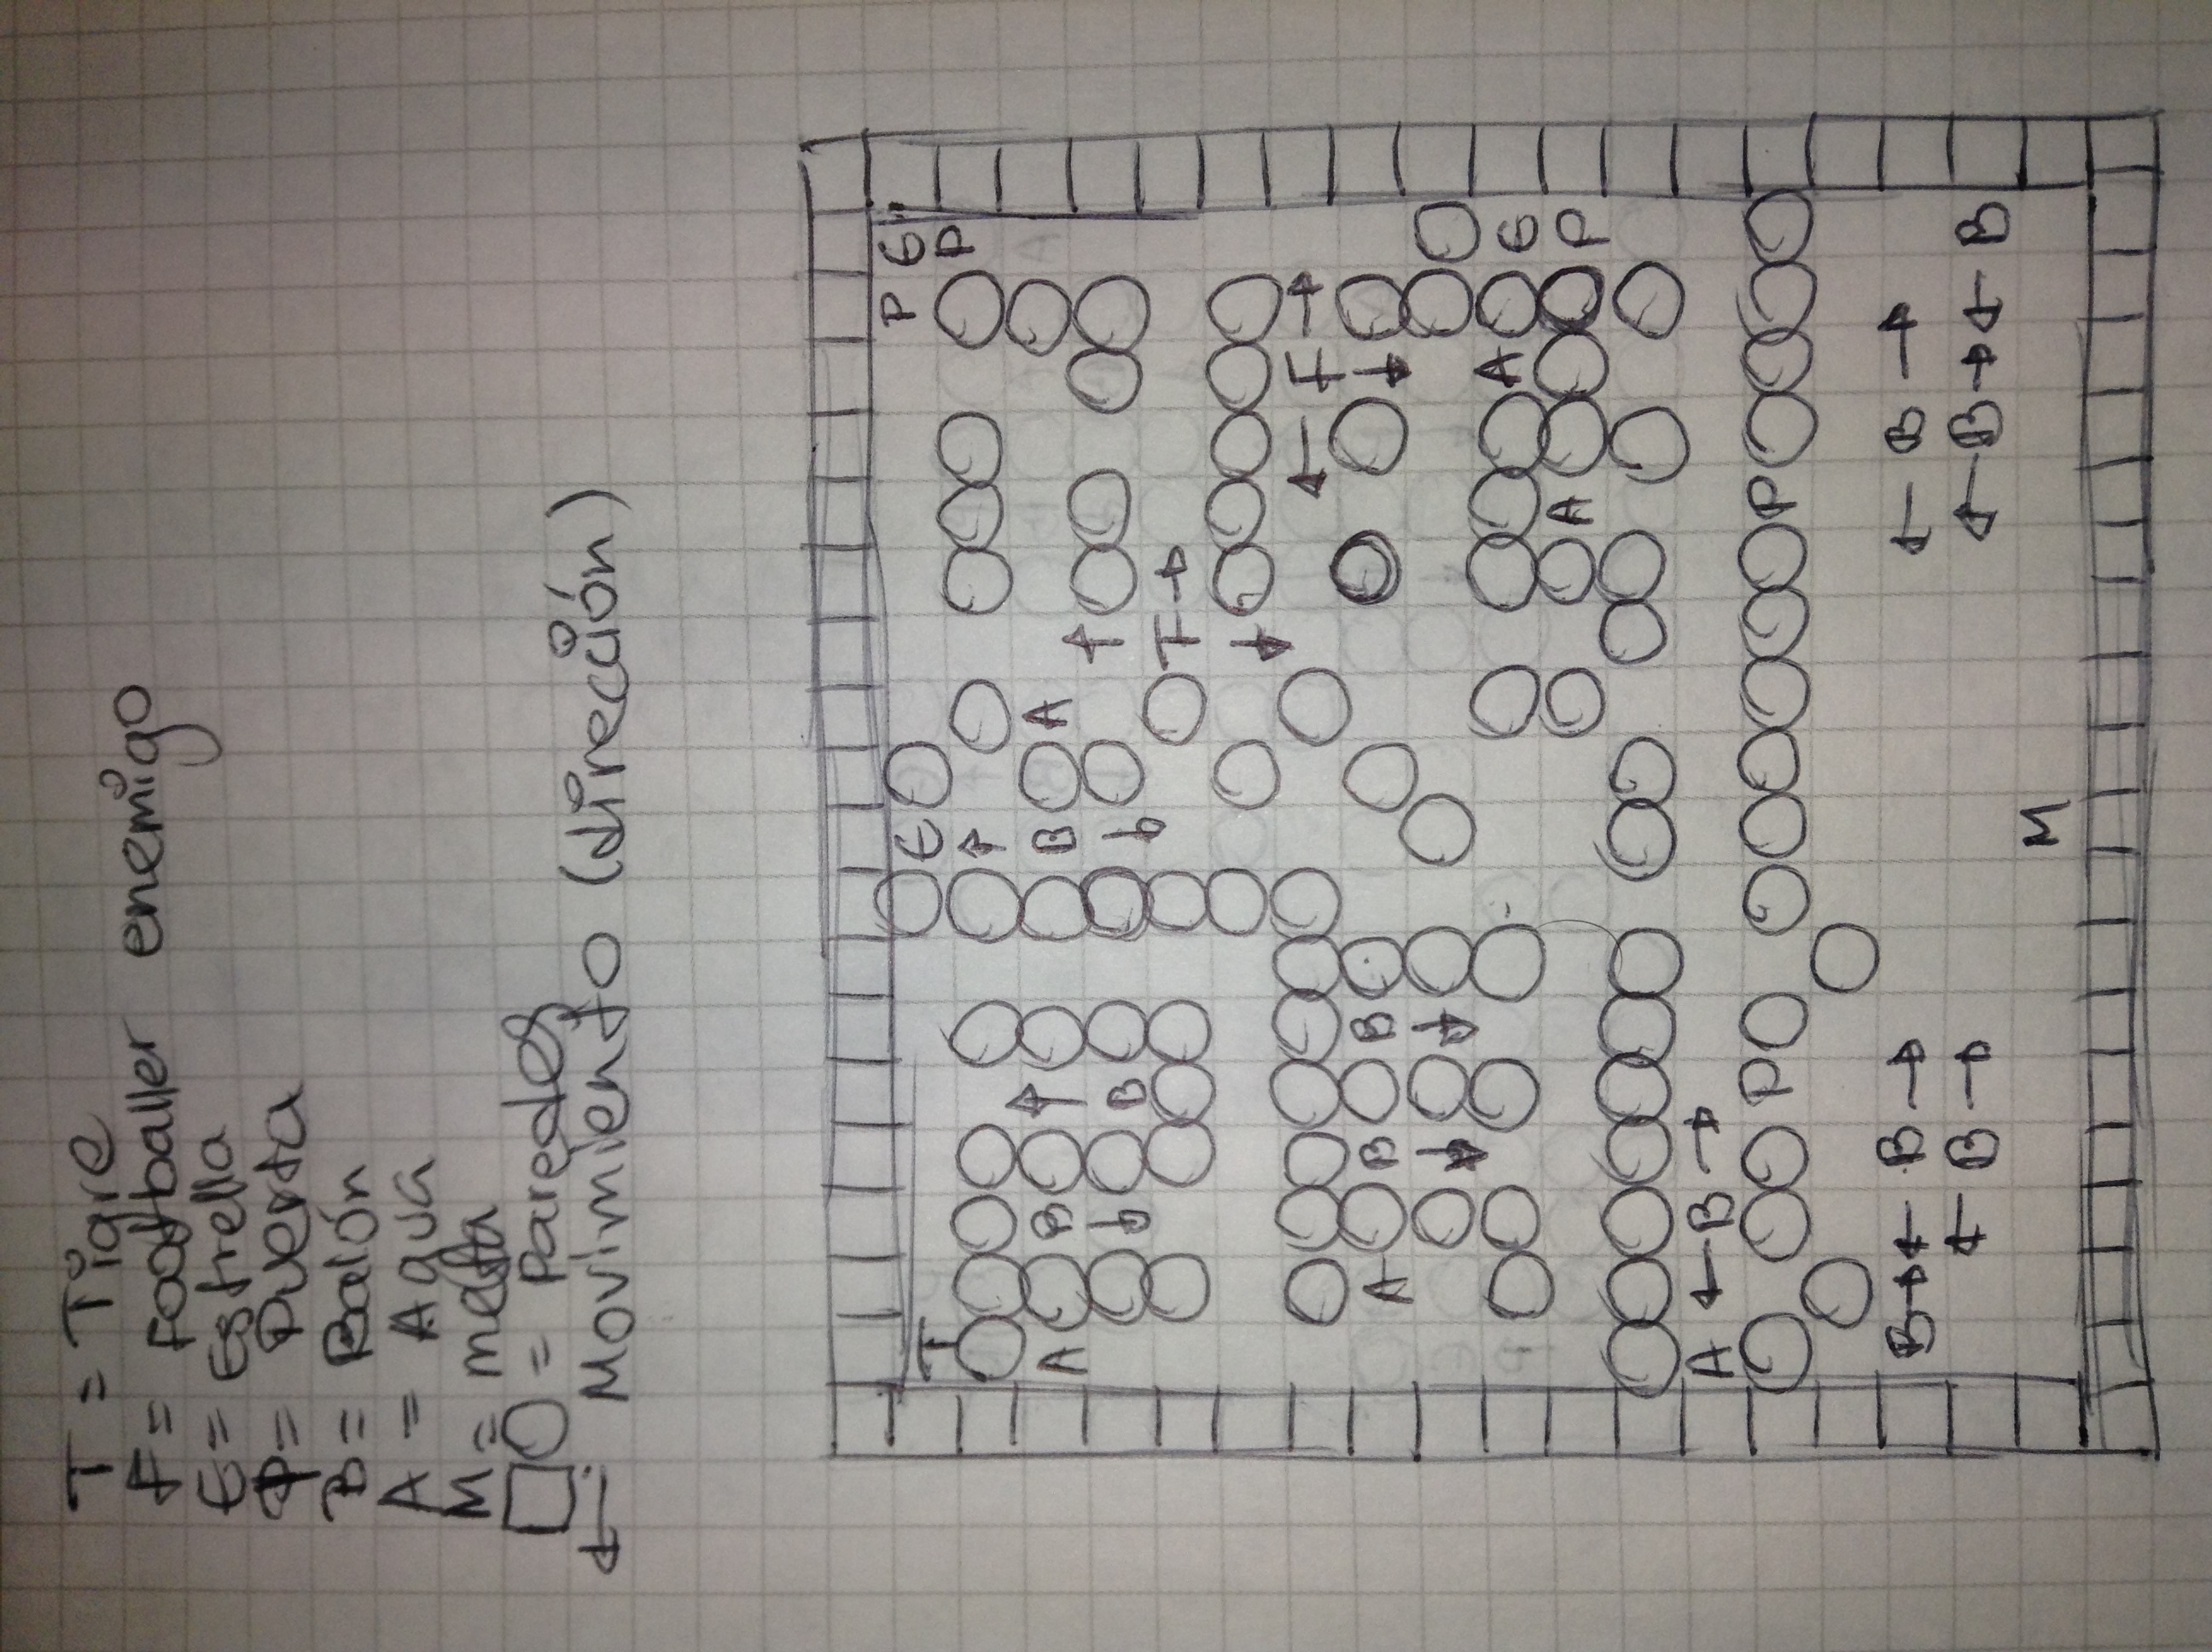 T = Tigre
F = Footballer enemigo
E = Estrella
P = Puerta
B = Balón
A = Agua
M = meta
□○ = Paredes
← Movimiento (dirección)
E P E
T P
↑ ↑
A B B A
↓ B ↓ ↑
F →
↓
← F →
A B B ↓
↓ ↓
A E
A P
A ← B →
P P
B → ← B → ← B →
← B → ← B → ← B
M